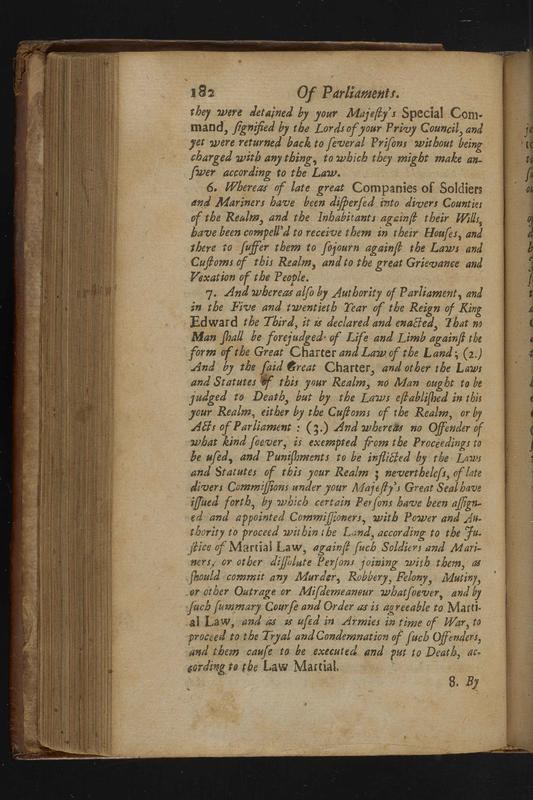 182 Of Parliaments.
they were detained by your Majeſty's Special Com-
mand, ſignified by the Lords of your Privy Council, and
yet were returned back to ſeveral Priſons without being
charged with any thing, to which they might make an-
ſwer according to the Law.
6. Whereas of late great Companies of Soldiers
and Mariners have been diſperſed into divers Counties
of the Realm, and the Inhabitants againſt their Wills,
have been compell'd to receive them in their Houſes, and
there to ſuffer them to ſojourn againſt the Laws and
Cuſtoms of this Realm, and to the great Grievance and
Vexation of the People.
7. And whereas alſo by Authority of Parliament, and
in the Five and twentieth Year of the Reign of King
Edward the Third, it is declared and enacted, That no
Man ſhall be forejudged of Life and Limb againſt the
form of the Great Charter and Law of the Land; (2.)
And by the ſaid Great Charter, and other the Laws
and Statutes of this your Realm, no Man ought to be
judged to Death, but by the Laws eſtabliſhed in this
your Realm, either by the Cuſtoms of the Realm, or by
Acts of Parliament: (3.) And whereas no Offender of
what kind ſoever, is exempted from the Proceedings to
be uſed, and Puniſhments to be inflicted by the Laws
and Statutes of this your Realm; nevertheleſs, of late
divers Commiſſions under your Majeſty's Great Seal have
iſſued forth, by which certain Perſons have been aſſign-
ed and appointed Commiſſioners, with Power and Au-
thority to proceed within the Land, according to the Ju-
ſtice of Martial Law, againſt ſuch Soldiers and Mari-
ners, or other diſſolute Perſons joining with them, as
ſhould commit any Murder, Robbery, Felony, Mutiny,
or other Outrage or Miſdemeanour whatſoever, and by
ſuch ſummary Courſe and Order as is agreeable to Marti-
al Law, and as is uſed in Armies in time of War, to
proceed to the Tryal and Condemnation of ſuch Offenders,
and them cauſe to be executed and put to Death, ac-
cording to the Law Martial.
8. By